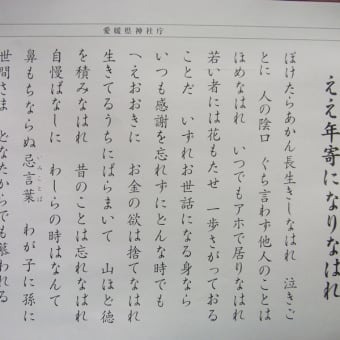 愛媛県神社庁
ええ年寄になりなはれ
ぼけたらあかん長生きしなはれ 泣きご
とに 人の陰口 ぐち言わず他人のことは
ほめなはれ いつでもアホで居りなはれ
若い者には花もたせ 一歩さがっておる
ことだ いずれお世話になる身なら
いつも感謝を忘れずにどんな時でも
へえおおきに お金の欲は捨てなはれ
生きてるうちにばらまいて 山ほど徳
を積みなはれ 昔のことは忘れなはれ
自慢ばなしに わしらの時はなんて
鼻もちならぬ忌言葉 わが子に孫に
いみことば
世間さま どなたからでも慕われる